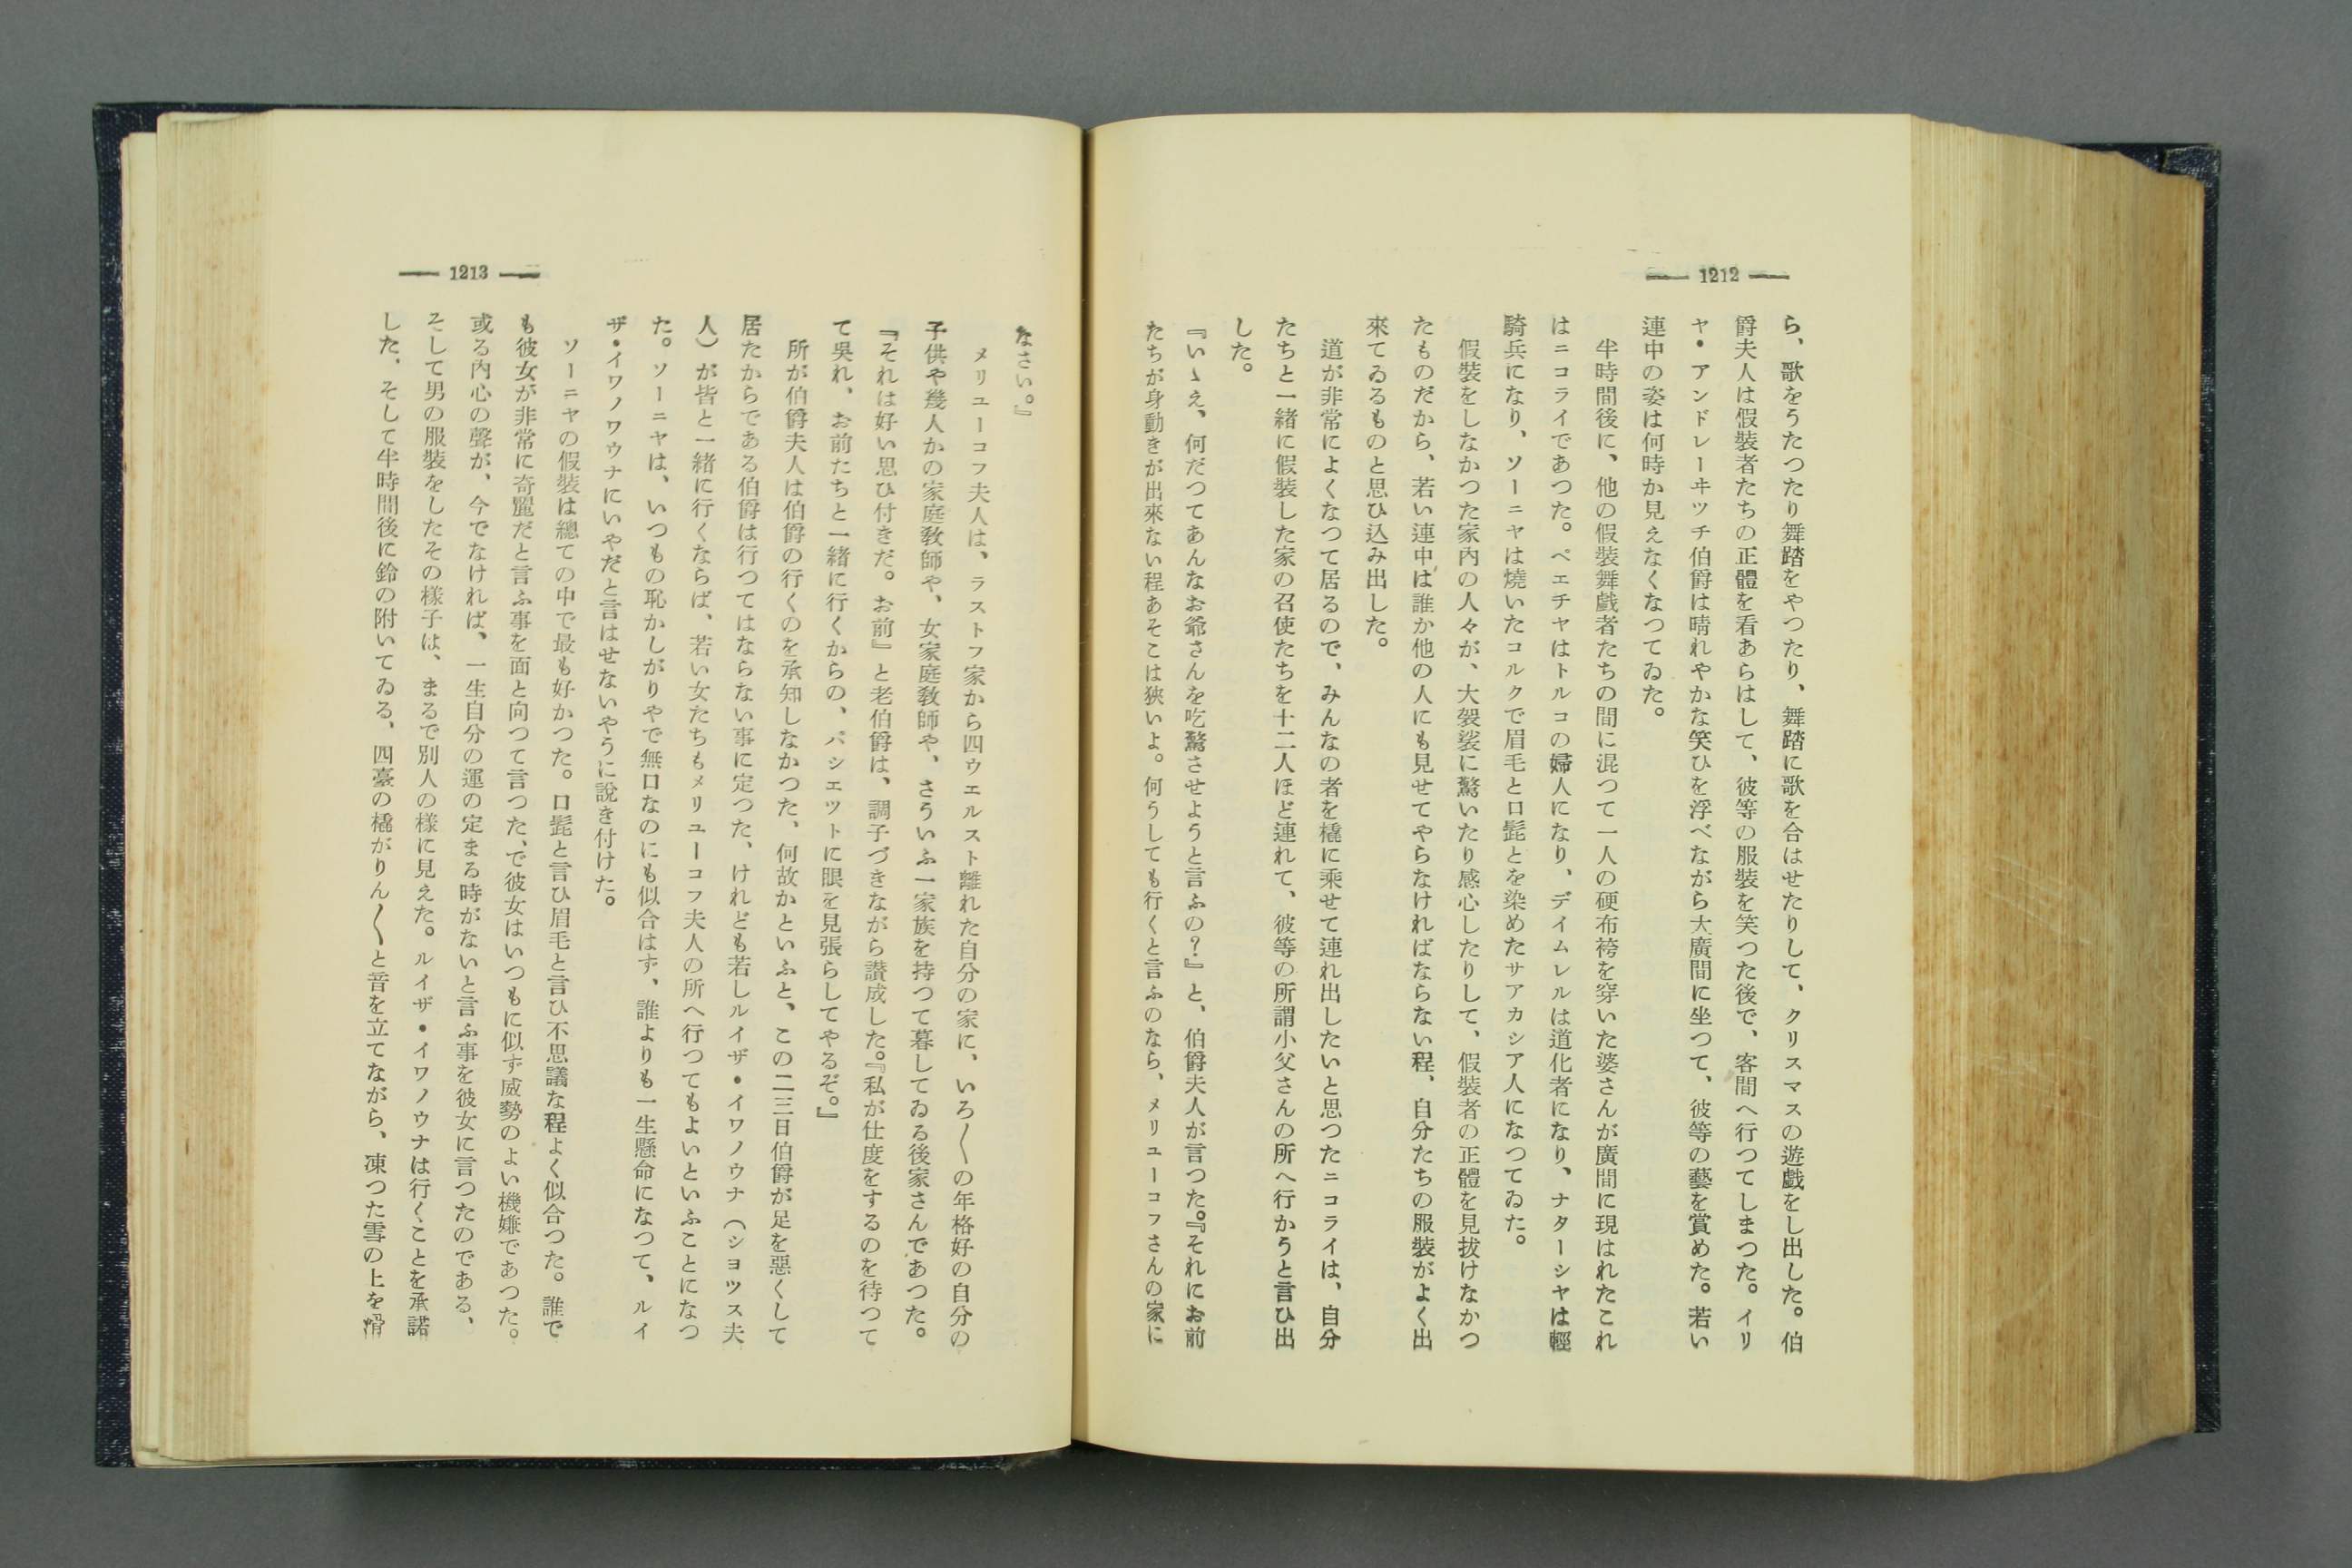 — 1212 —
ら、歌をうたつたり舞踏をやつたり、舞踏に歌を合はせたりして、クリスマスの遊戯をし出した。伯
爵夫人は假裝者たちの正體を看あらはして、彼等の服裝を笑つた後で、客間へ行つてしまつた。イリ
ヤ・アンドレーヰツチ伯爵は晴れやかな笑ひを浮べながら大廣間に坐つて、彼等の藝を賞めた。若い
連中の姿は何時か見えなくなつてゐた。
半時間後に、他の假裝舞戯者たちの間に混つて一人の硬布袴を穿いた婆さんが廣間に現はれたこれ
はニコライであつた。ペエチヤはトルコの婦人になり、デイムレルは道化者になり、ナターシヤは輕
騎兵になり、ソーニヤは燒いたコルクで眉毛と口髭とを染めたサアカシア人になつてゐた。
假裝をしなかつた家內の人々が、大袈裟に驚いたり感心したりして、假裝者の正體を見拔けなかつ
たものだから、若い連中は誰か他の人にも見せてやらなければならない程、自分たちの服裝がよく出
來てゐるものと思ひ込み出した。
道が非常によくなつて居るので、みんなの者を橇に乘せて連れ出したいと思つたニコライは、自分
たちと一緒に假裝した家の召使たちを十二人ほど連れて、彼等の所謂小父さんの所へ行かうと言ひ出
した。
『いゝえ、何だつてあんなお爺さんを吃驚させようと言ふの？』と、伯爵夫人が言つた。『それにお前
たちが身動きが出來ない程あそこは狹いよ。何うしても行くと言ふのなら、メリユーコフさんの家に
— 1213 —
なさい。』
メリユーコフ夫人は、ラストフ家から四ウエルスト離れた自分の家に、いろ〱の年格好の自分の
子供や幾人かの家庭敎師や、女家庭敎師や、さういふ一家族を持つて暮してゐる後家さんであつた。
『それは好い思ひ付きだ。お前』と老伯爵は、調子づきながら讃成した。『私が仕度をするのを待つて
て吳れ、お前たちと一緒に行くからの、パシエツトに眼を見張らしてやるぞ。』
所が伯爵夫人は伯爵の行くのを承知しなかつた、何故かといふと、この二三日伯爵が足を惡くして
居たからである伯爵は行つてはならない事に定つた、けれども若しルイザ・イワノウナ（シヨツス夫
人）が皆と一緒に行くならば、若い女たちもメリユーコフ夫人の所へ行つてもよいといふことになつ
た。ソーニヤは、いつもの恥かしがりやで無口なのにも似合はず、誰よりも一生懸命になつて、ルイ
ザ・イワノワウナにいやだと言はせないやうに說き付けた。
ソーニヤの假裝は總ての中で最も好かつた。口髭と言ひ眉毛と言ひ不思議な程よく似合つた。誰で
も彼女が非常に奇麗だと言ふ事を面と向つて言つた、で彼女はいつもに似ず威勢のよい機嫌であつた。
或る內心の聲が、今でなければ、一生自分の運の定まる時がないと言ふ事を彼女に言つたのである、
そして男の服裝をしたその樣子は、まるで別人の樣に見えた。ルイザ・イワノウナは行くことを承諾
した、そして半時間後に鈴の附いてゐる、四臺の橇がりん〱と音を立てながら、凍つた雪の上を滑